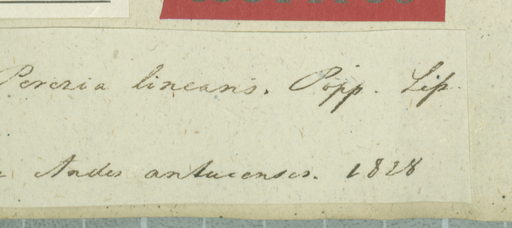 Perezia linearis. Pöpp. Lips.
Andes antucenses. 1828